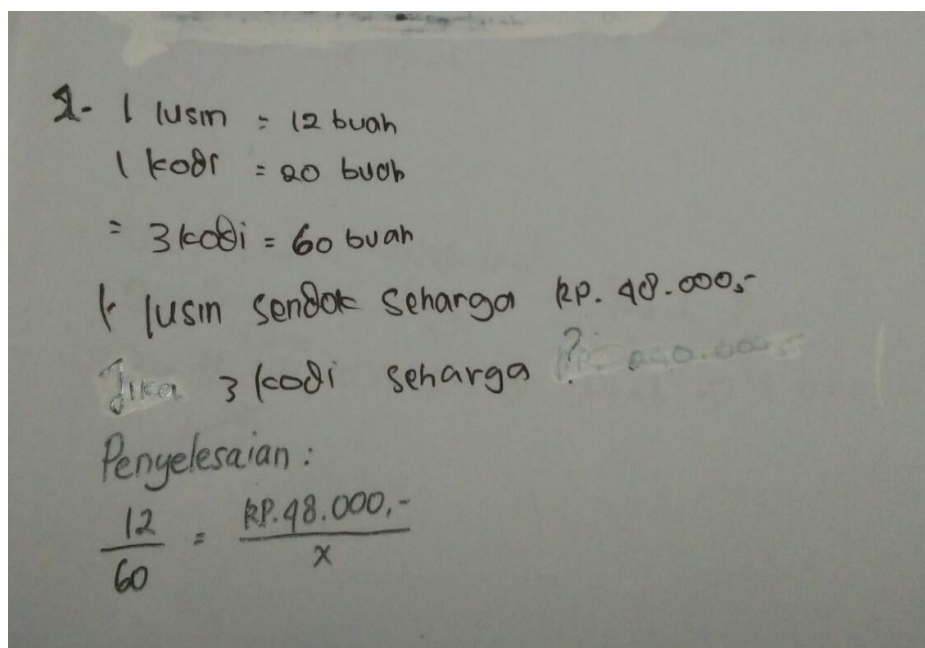 2. 1 lusin = 12 buah
1 kodi = 20 buah
= 3 kodi = 60 buah
1 lusin sendok seharga Rp. 48.000,-
Jika 3 kodi seharga ?
Penyelesaian :
12 = RP.48.000,-
60 x